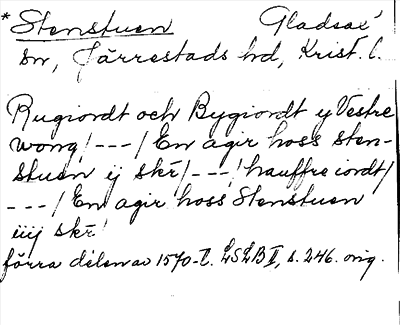 *Stenstuen Gladsax
sn, Järrestads hd, Krist. l.
Rugiordt och Bygiordt y Vestre
wong/---/ En agir hoss sten-
stuen ij skr̄/---/ hauffre iordt/
---/ En agir hoss Stenstuen
iiij skr̄!
förra delen av 1570-t. LSLB II, s. 246. orig.